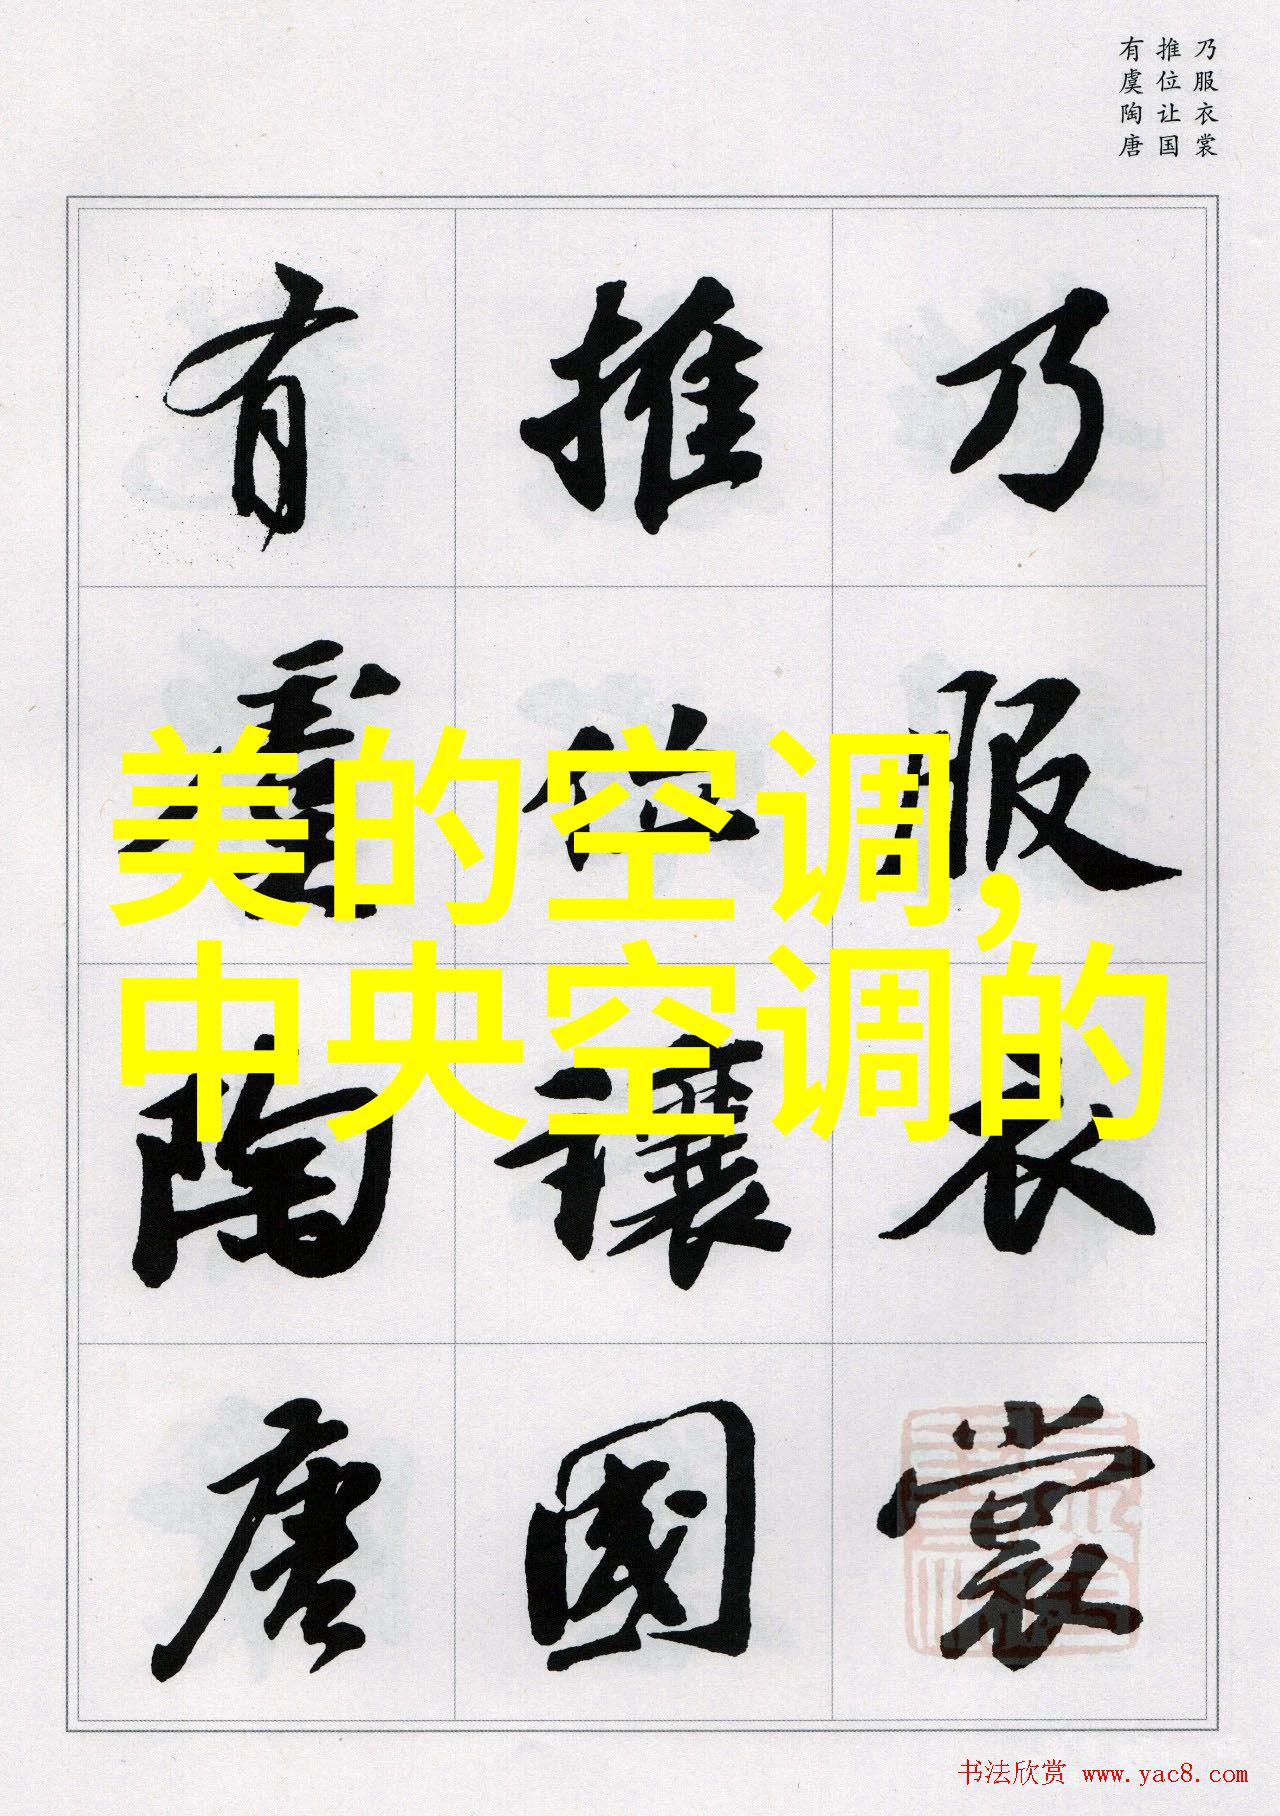 乃服衣裳
推位让国
有虞陶唐
乃服衣裳
推位讓國
有虞陶唐
美的空调,
中央空调的
书法欣赏 www.yac8.com